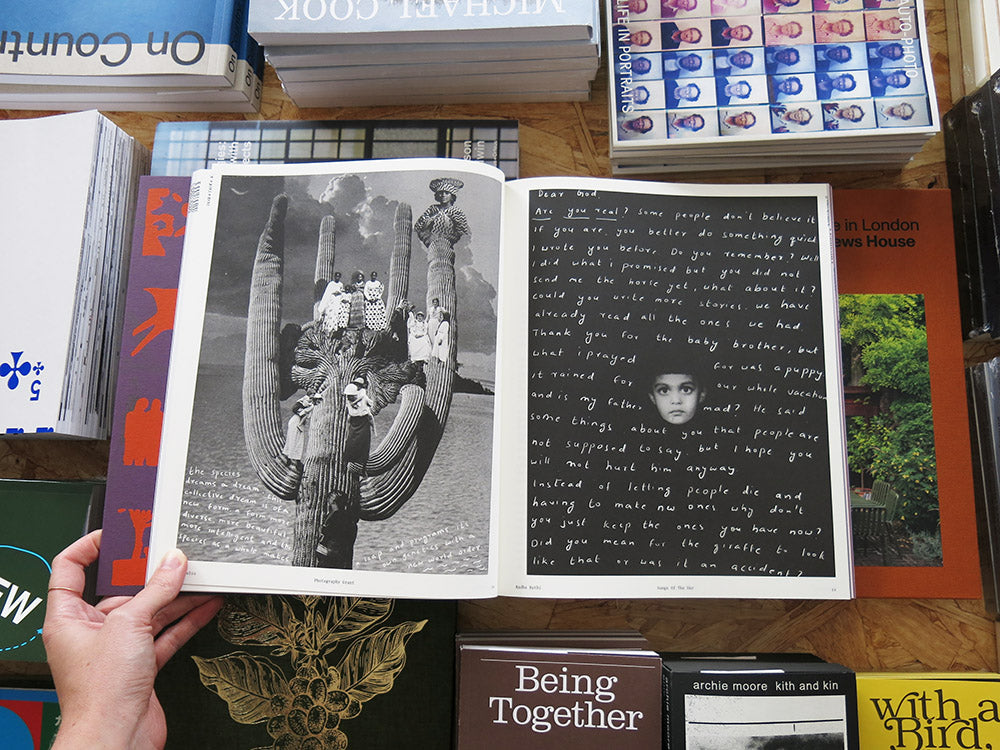 On Countr
On
On
MICHAEL COOK
LIFE IN PORTRAITS
AUTO-PHOTO
with
5
in London
ws House
Dear God
Are you real? Some people don't believe it
If you are, you better do something quick
I wrote you before. Do you remember? Well
I did what I promised but you did not
send me the horse yet, what about it?
could you write more stories. we have
already read all the ones we had.
Thank you for the baby brother, but
what i prayed for was a puppy
it rained for our whole vacation
and is my father, mad? He said
some things about you that people are
not supposed to say, but I hope you
will not hurt him anyway.
Instead of letting people die and
having to make new ones why don't
you just keep the ones you have now?
Did you mean for the giraffe to look
like that or was it an accident?
the species
dreams a dream this
collective dream is of a
new form a form more
diverse more beautiful
more intelligent and the
species as a whole makes
map and programs it's
own genetics with a
new world order
Photography Grant
Songs Of The
EW
Being
Together
archie moore kith and kin
with a
Bird